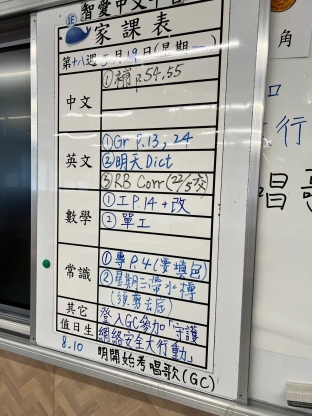 1E
智愛中文平台
家課表
第十八週 5月19日(星期一)
中文 ①補 p.54.55
英文 ①Gr P.13, 24
②明天Dict
③RB Corr(22/5交)
數學 ①工P.14+改
②單工
常識 ①專P.4(要填包)
②星期三帶水樽
其它 登入GC參加「守護
值日生 網絡安全大行動」
8.10 明開始考唱歌(GC)
角
口
大行
唱歌